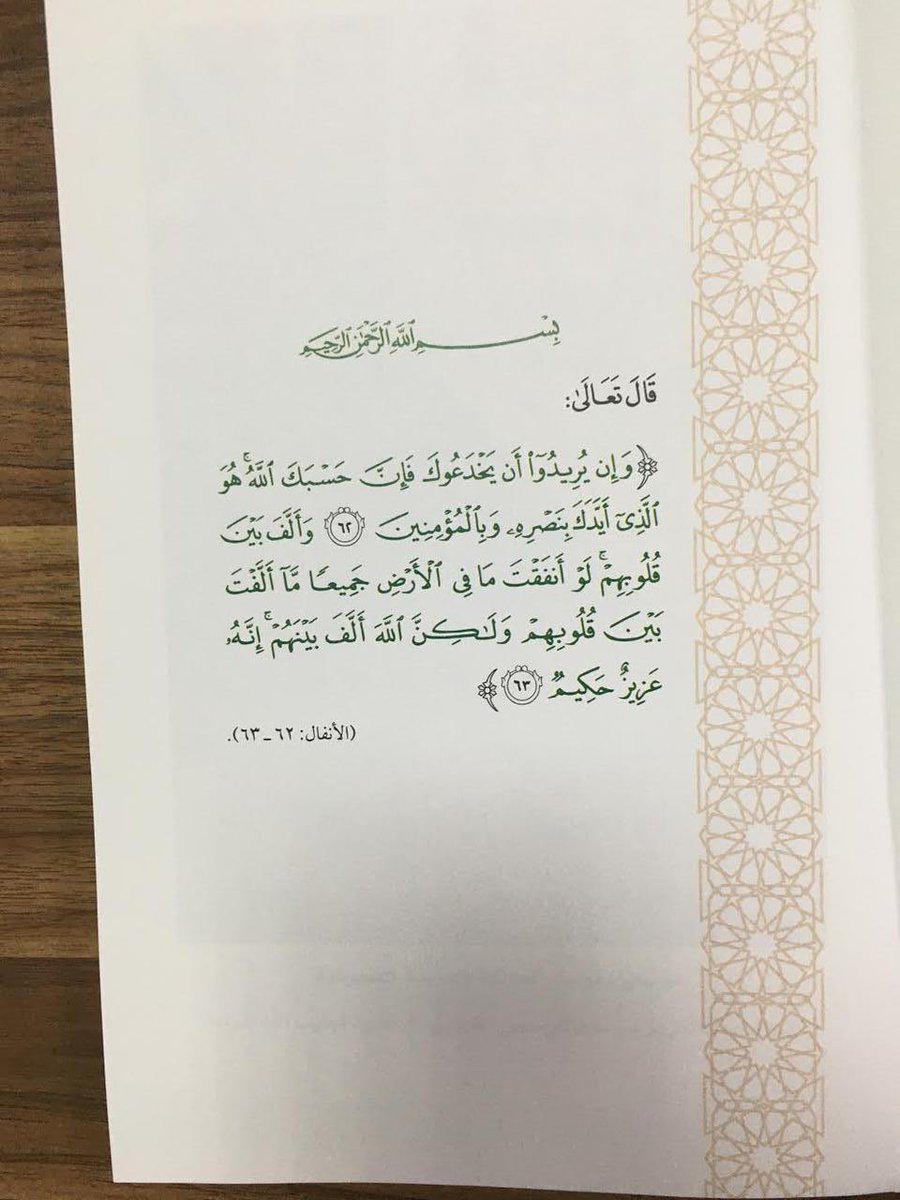 بِسْمِ ٱللَّهِ ٱلرَّحْمَٰنِ ٱلرَّحِيمِ
قَالَ تَعَالَىٰ:
﴿وَإِن يُرِيدُوٓا۟ أَن يَخْدَعُوكَ فَإِنَّ حَسْبَكَ ٱللَّهُ ۚ هُوَ
ٱلَّذِىٓ أَيَّدَكَ بِنَصْرِهِۦ وَبِٱلْمُؤْمِنِينَ ٦٢ وَأَلَّفَ بَيْنَ
قُلُوبِهِمْ ۚ لَوْ أَنفَقْتَ مَا فِى ٱلْأَرْضِ جَمِيعًا مَّآ أَلَّفْتَ
بَيْنَ قُلُوبِهِمْ وَلَٰكِنَّ ٱللَّهَ أَلَّفَ بَيْنَهُمْ ۚ إِنَّهُۥ
عَزِيزٌ حَكِيمٌ ٦٣﴾
(الأنفال: ٦٢ - ٦٣).